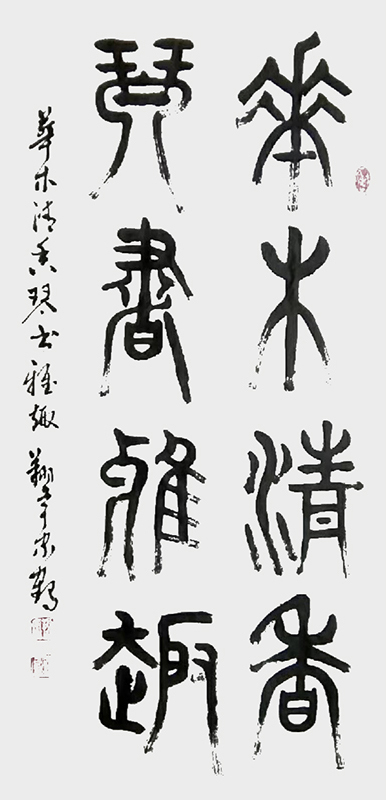 華木清香
琴書雅趣
華木清香琴书雅趣